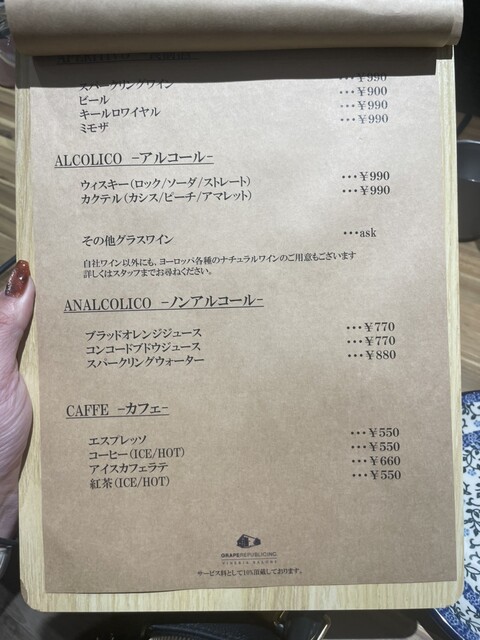 スパークリングワイン ・・・￥990
ビール ・・・￥900
キールロワイヤル ・・・￥990
ミモザ ・・・￥990
ALCOLICO -アルコール-
ウィスキー(ロック/ソーダ/ストレート) ・・・￥990
カクテル(カシス/ピーチ/アマレット) ・・・￥990
その他グラスワイン ・・・ask
自社ワイン以外にも、ヨーロッパ各種のナチュラルワインのご用意もございます
詳しくはスタッフまでお尋ねください。
ANALCOLICO -ノンアルコール-
ブラッドオレンジジュース ・・・￥770
コンコードブドウジュース ・・・￥770
スパークリングウォーター ・・・￥880
CAFFE -カフェ-
エスプレッソ ・・・￥550
コーヒー(ICE/HOT) ・・・￥550
アイスカフェラテ ・・・￥660
紅茶(ICE/HOT) ・・・￥550
GRAPEREPUBLICINC
サービス料として10%頂戴しております。